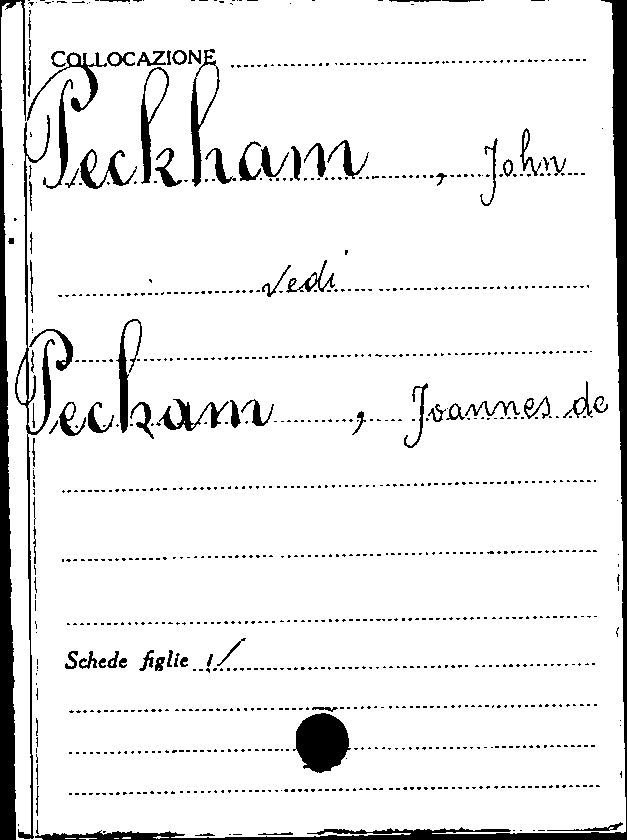 COLLOCAZIONE
Peckham, John
vedi
Peckam, Joannes de
Schede figlie 1/